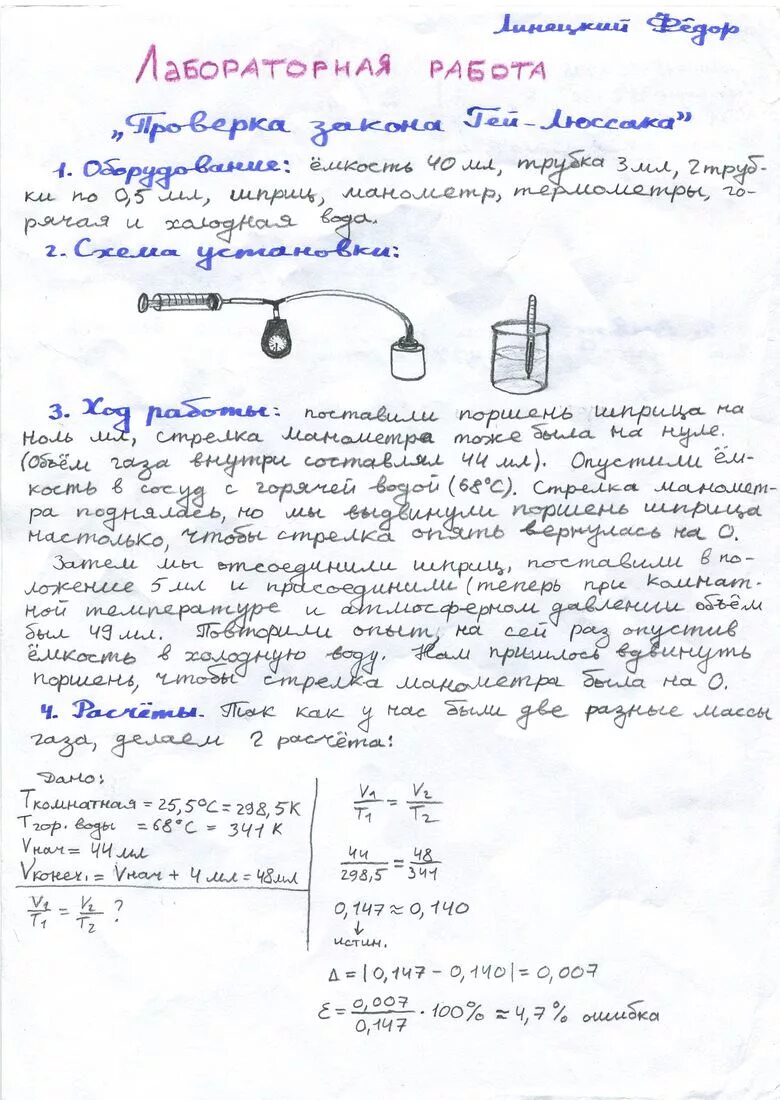 Линецкий Фёдор
Лабораторная работа
„Проверка закона Гей-Люссака"
1. Оборудование: ёмкость 40 мл, трубка 3 мл, 2 труб-
ки по 0,5 мл, шприц, манометр, термометры, го-
рячая и холодная вода.
2. Схема установки:
3. Ход работы: поставили поршень шприца на
ноль мл, стрелка манометра тоже была на нуле.
(Объём газа внутри составлял 44 мл). Опустили ём-
кость в сосуд с горячей водой (68°С). Стрелка маномет-
ра поднялась, но мы выдвинули поршень шприца
настолько, чтобы стрелка опять вернулась на 0.
Затем мы отсоединили шприц, поставили в по-
ложение 5 мл и присоединили (теперь при комнат-
ной температуре и атмосферном давлении объём
был 49 мл. Повторили опыт, на сей раз опустив
ёмкость в холодную воду. Нам пришлось вдвинуть
поршень, чтобы стрелка манометра была на 0.
4. Расчёты. Так как у нас были две разные массы
газа, делаем 2 расчёта:
Дано:
Tкомнатная = 25,5°С = 298,5 К
Tгор. воды = 68°С = 341 К
Vнач = 44 мл
Vконеч. = Vнач + 4 мл = 48 мл
V1/T1 = V2/T2 ?
V1/T1 = V2/T2
44/298,5 = 48/341
0,147 ≈ 0,140
↓
истин.
Δ = |0,147 - 0,140| = 0,007
ε = 0,007/0,147 · 100% ≈ 4,7% ошибка